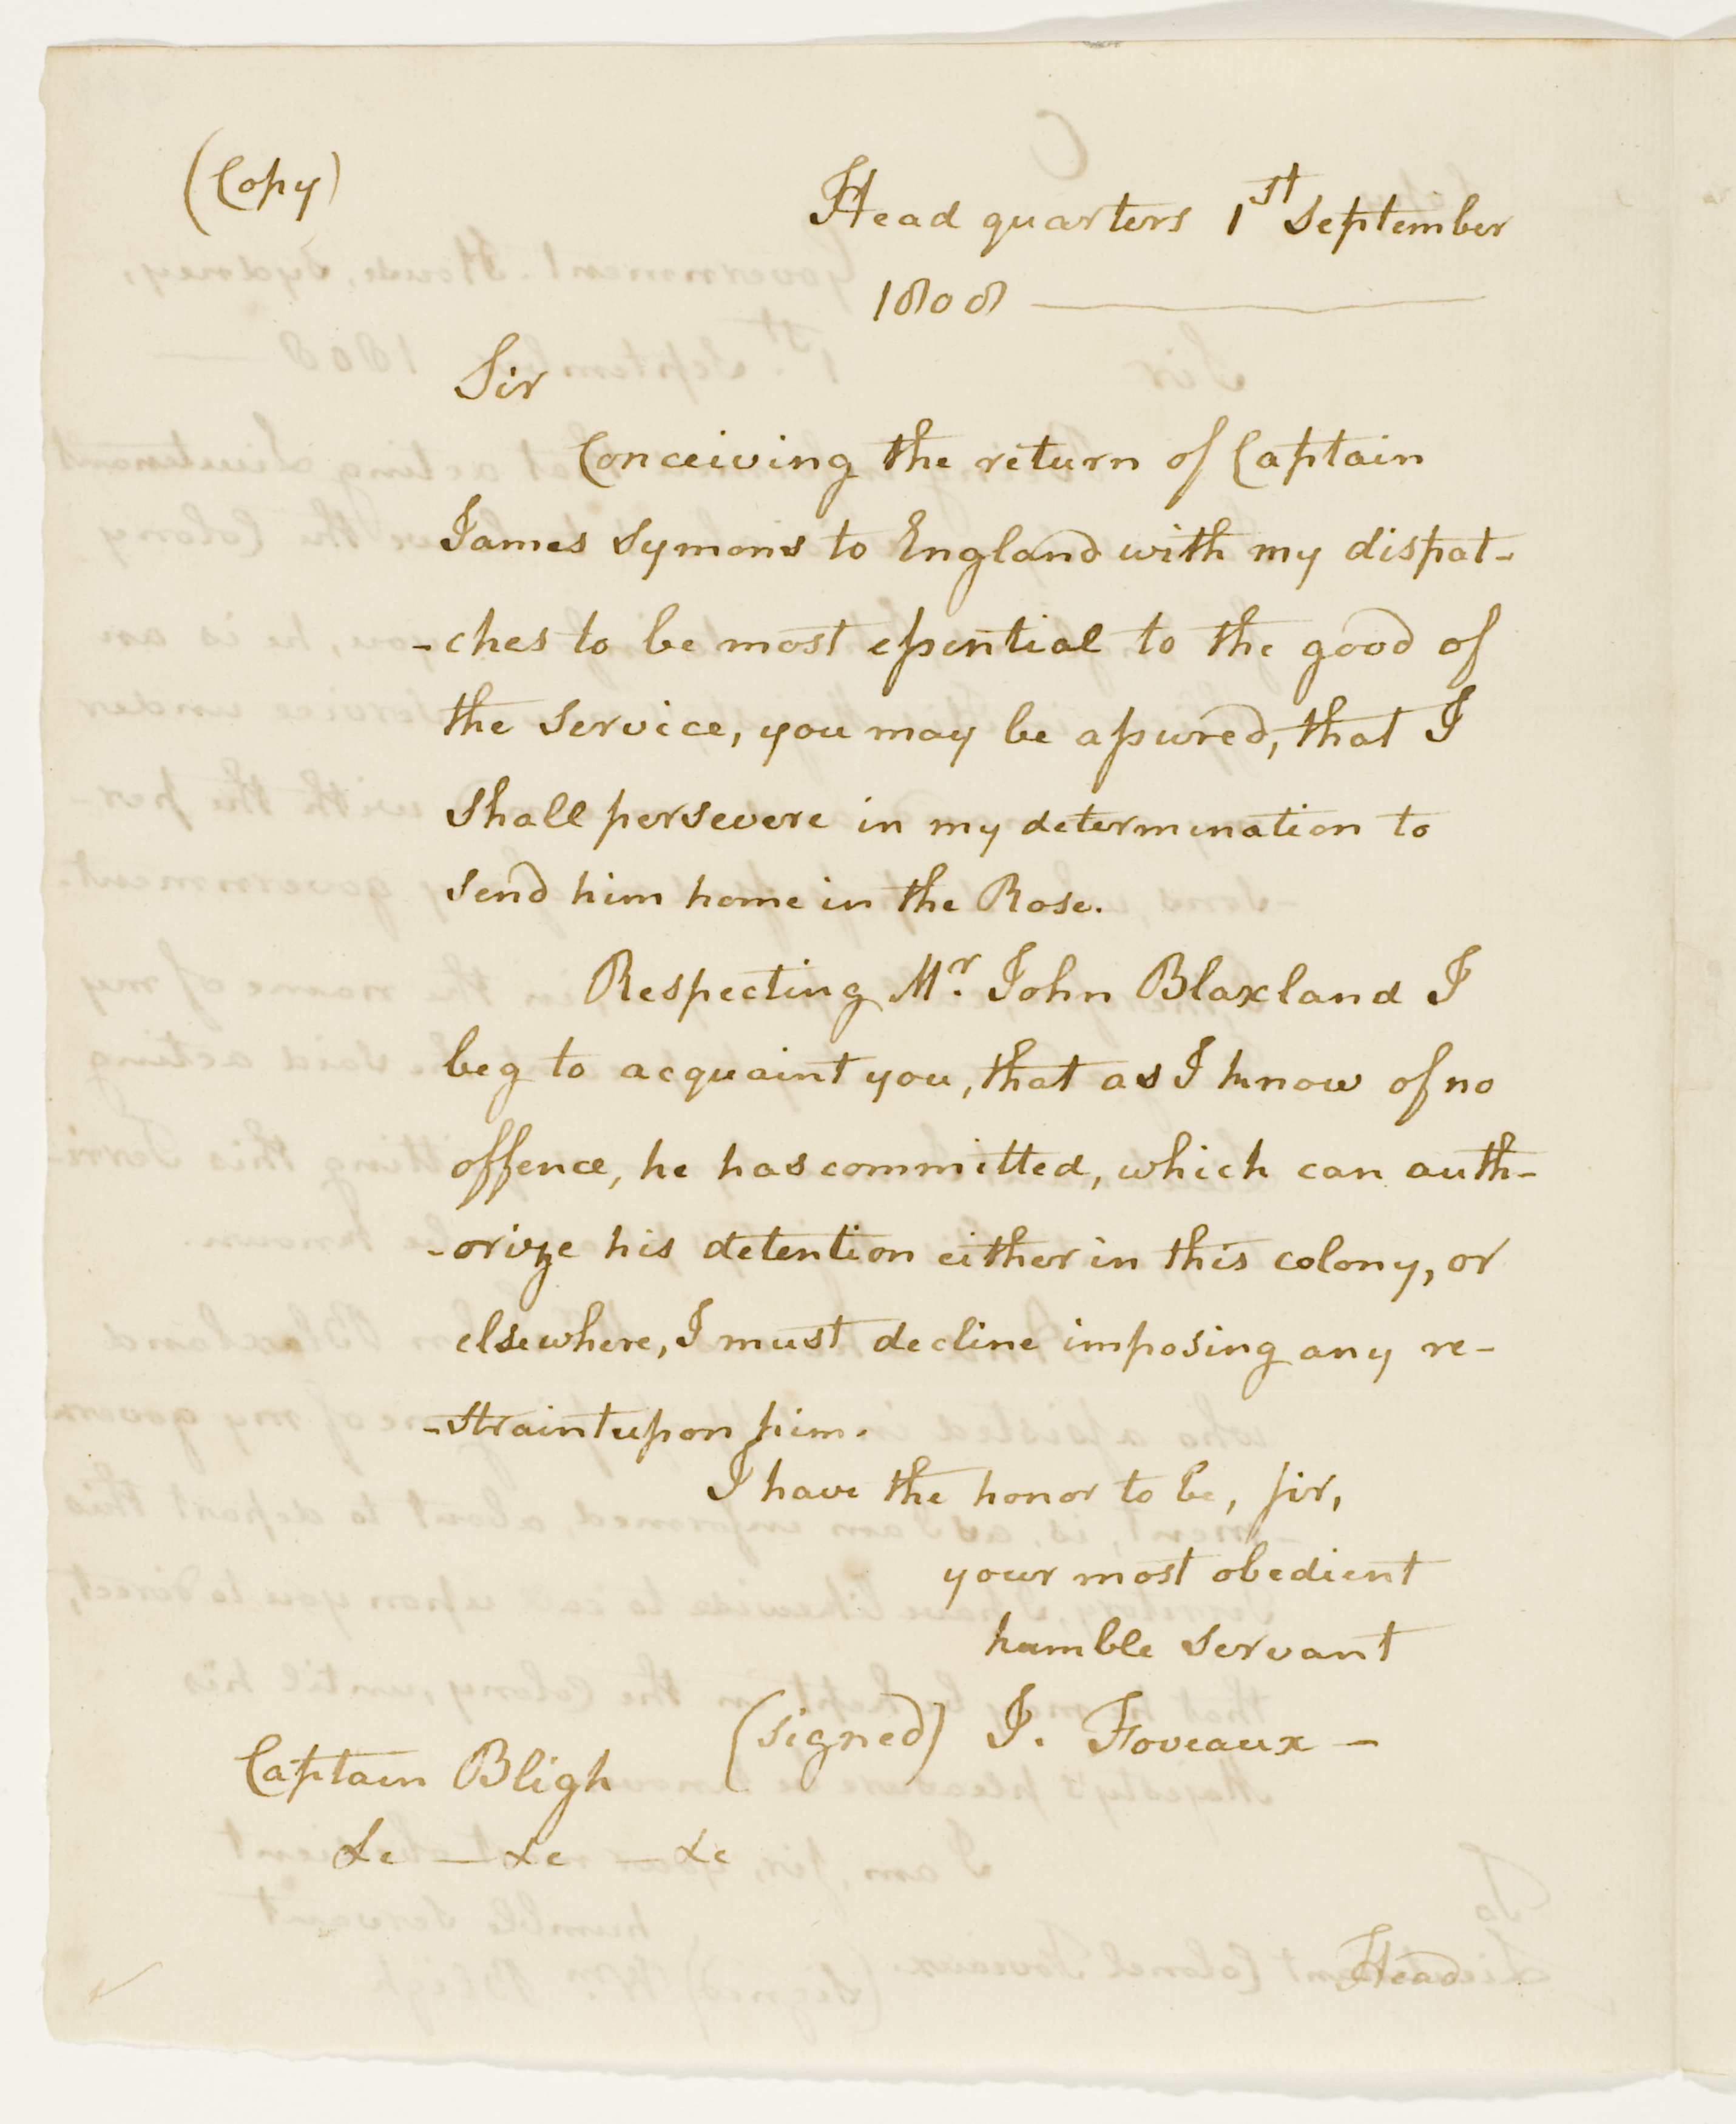 (Copy)
Head quarters 1st September
1808
Sir
Conceiving the return of Captain
James Symons to England with my dispat-
-ches to be most essential to the good of
the service, you may be assured, that I
shall persevere in my determination to
send him home in the Rose.
Respecting Mr. John Blaxland I
beg to acquaint you, that as I know of no
offence, he has committed, which can auth-
-orize his detention either in this colony, or
elsewhere, I must decline imposing any re-
-straint upon him.
I have the honor to be, sir,
your most obedient
humble servant
(signed) J. Foveaux -
Captain Bligh
&c — &c — &c
Head